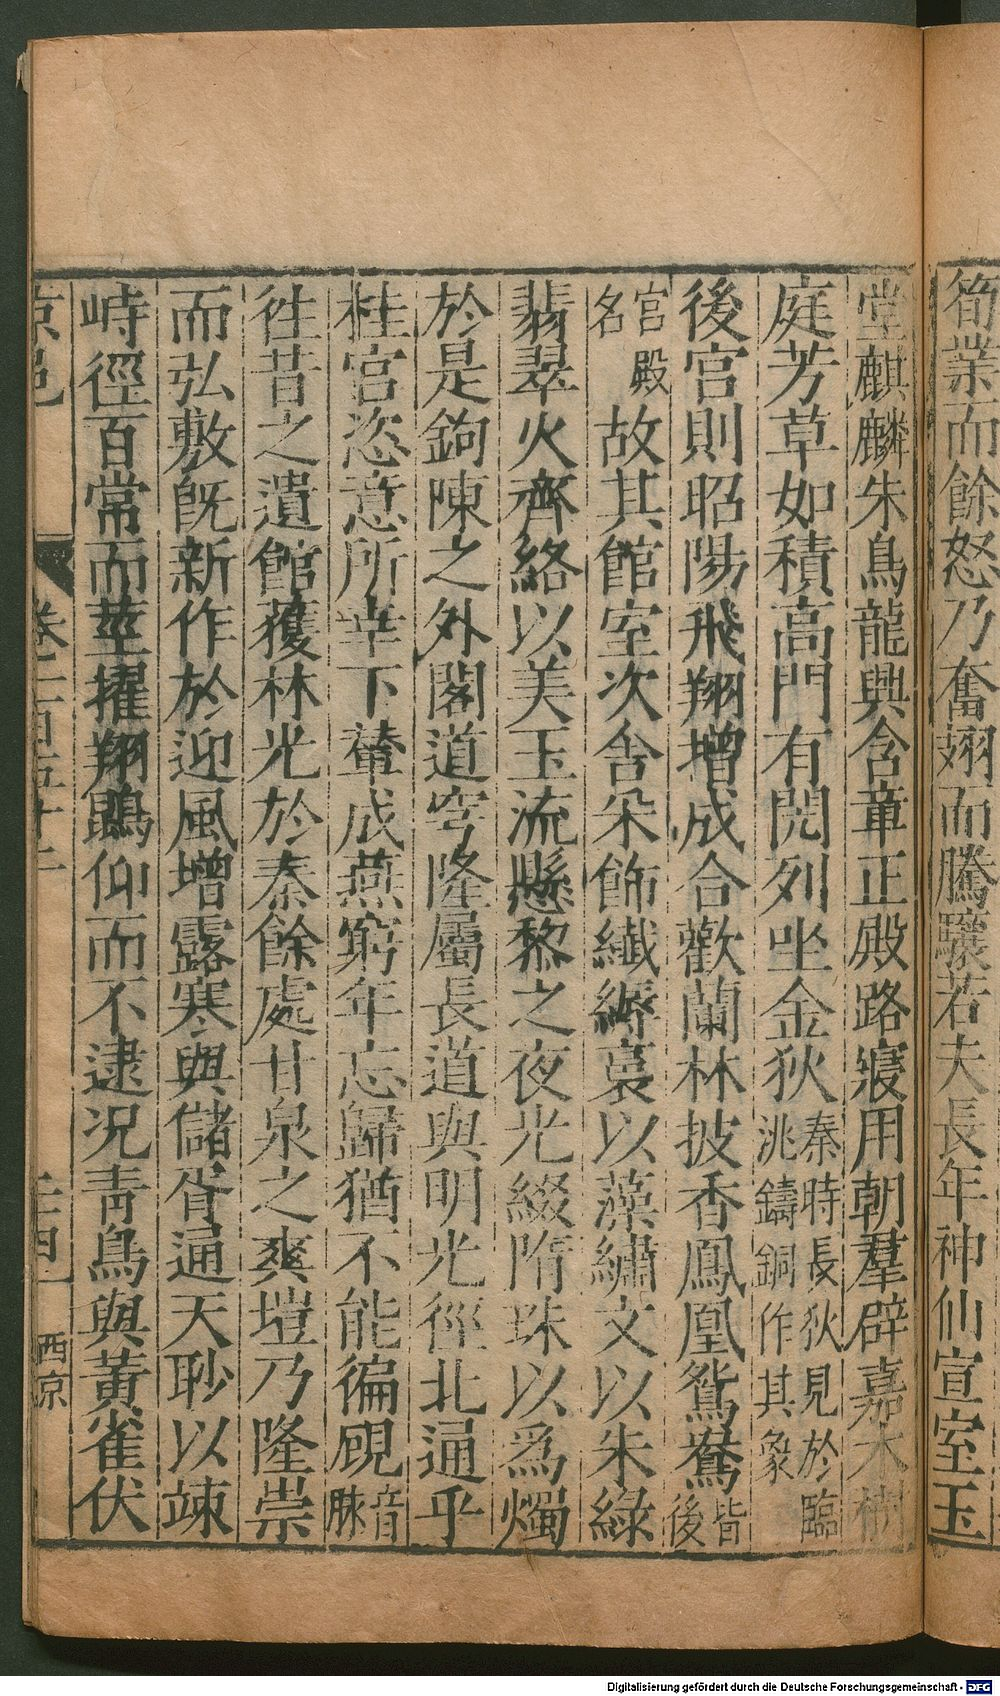 筍業而餘怒乃奮翅而騰驤若夫長年神仙宣室玉
堂麒麟朱鳥龍興含章正殿路寢用朝羣辟嘉木樹
庭芳草如積高門有閌列坐金狄秦時長狄見於臨洮鑄銅作其象
後宮則昭陽飛翔增成合歡蘭林披香鳳凰鴛鴦皆後
宮殿名故其館室次舍采飾纖縟裛以藻繡文以朱綠
翡翠火齊絡以美玉流懸黎之夜光綴隋珠以爲燭
於是鉤陳之外閣道穹隆屬長道與明光徑北通乎
桂宮恣意所幸下輦成燕窮年忘歸猶不能徧覛音脉
徃昔之遺館獲林光於秦餘處甘泉之爽塏乃隆崇
而弘敷旣新作於迎風增露寒與儲胥通天眇以竦
峙徑百常而莖擢翔鶤仰而不逮况靑鳥與黃雀伏
京邑 卷二百五十二 三四 西京
Digitalisierung gefördert durch die Deutsche Forschungsgemeinschaft - DFG